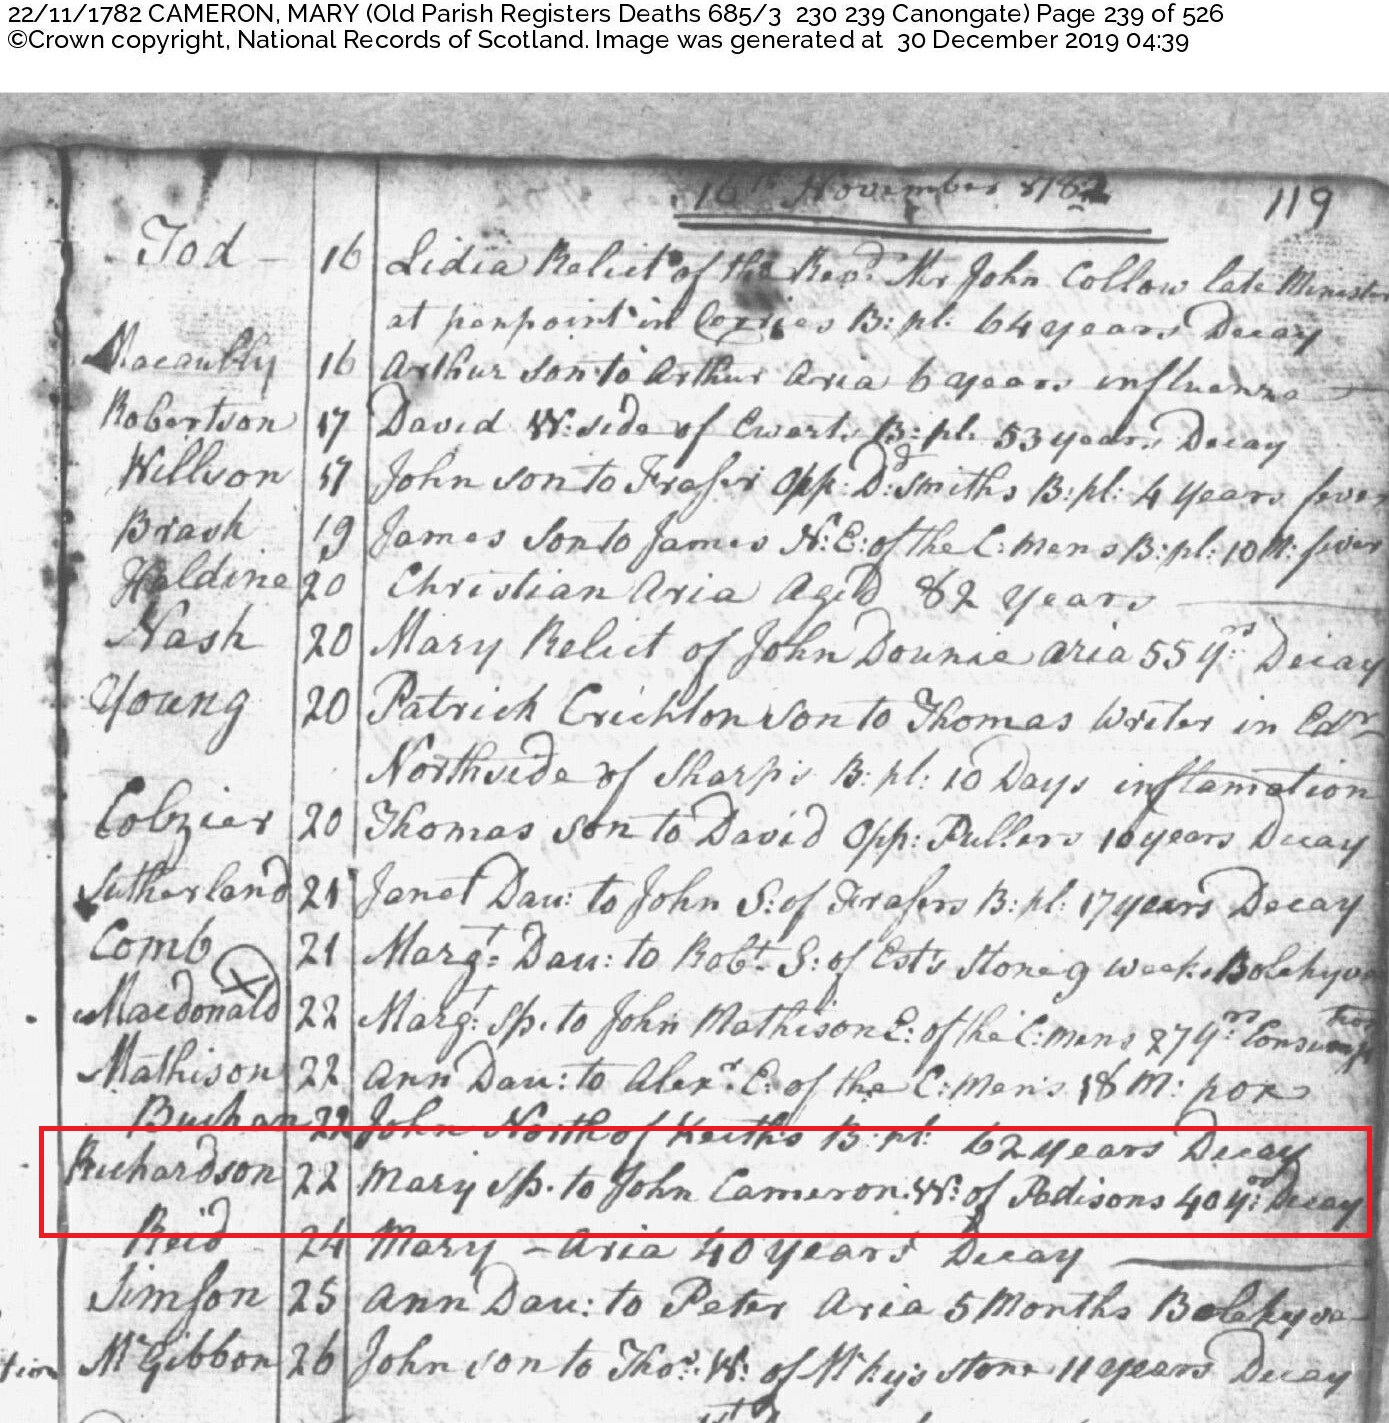 22/11/1782 CAMERON, MARY (Old Parish Registers Deaths 685/3 230 239 Canongate) Page 239 of 526
©Crown copyright, National Records of Scotland. Image was generated at 30 December 2019 04:39
16th November 1782 119
Tod - 16 Lidia Relict of the Revd. Mr John Collow late Minister
at penpoint in B: pl: 64 years Decay
Macaully 16 Arthur son to Arthur Aria 6 years influenza
Robertson 17 David W: side of Ewarts B: pl: 53 years Decay
Willson 17 John son to Fraser Opp: D: Smiths B: pl: 4 years fever
Brash 19 James Son to James N: E: of the C: mens B: pl: 10 M: fever
Haldine 20 Christian Aria Aged 82 years
Nash 20 Mary Relict of John Dounie aria 55 yrs: Decay
Young 20 Patrick Crichton son to Thomas Writer in Edr
Northside of Sharps B: pl: 10 Days inflamation
Cobzier 20 Thomas son to David Opp: Fullers 10 years Decay
Sutherland 21 Janet Dau: to John S: of Frasers B: pl: 17 years Decay
Comb 21 Margt: Dau: to Robt. S: of Est's stone 9 weeks
Macdonald 22 Margt: Sp. to John Mathison E: of the C: mens 27 yrs: Consumption
Mathison 22 Ann Dau: to Alexr. E: of the C: Mens 18 M: pox
Buchan 22 John North of Keiths B: pl: 62 years Decay
Richardson 22 Mary Sp. to John Cameron W: of Padisons 40 yrs: Decay
Reid 24 Mary - Aria 40 years Decay
Simson 25 Ann Dau: to Peter Aria 5 Months
tion McGibbon 26 John son to Thos: W: of stone 11 years Decay